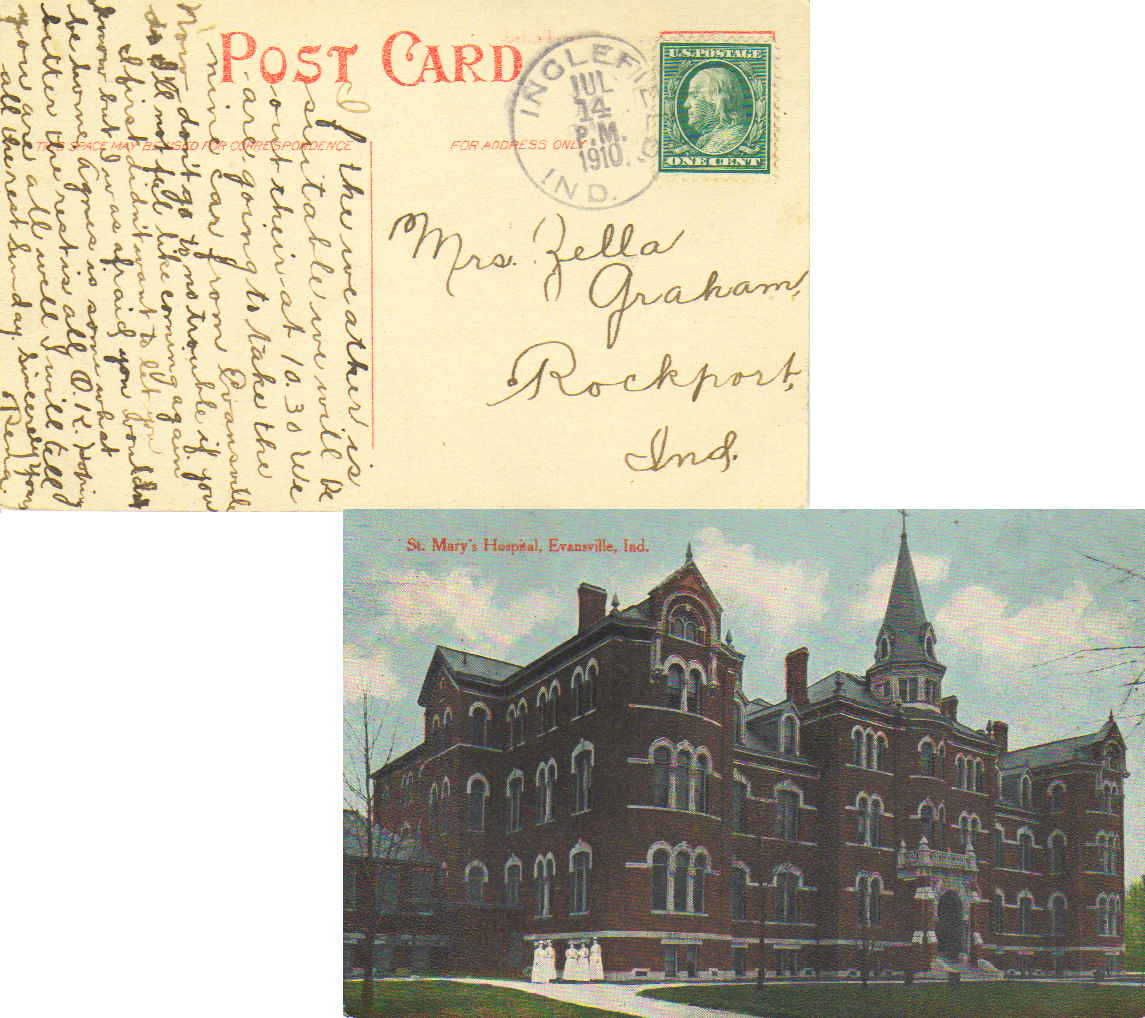 POST CARD
THIS SPACE MAY BE USED FOR CORRESPONDENCE
FOR ADDRESS ONLY
INGLEFIELD
JUL
14
P.M.
1910
IND.
U.S. POSTAGE
ONE CENT
If the weather is
suitable we will be
out their at 10.30 We
are going to take the
nine car from Evansville
Now don't go to no trouble if you
do I'll not feel like coming again
I first didn't want to let you
know but I was afraid you wouldn't
be home Agnes is some what
better the rest is all O.K. Hoping
you are all well I will tell
all the rest Sunday. Sincerely Yours
Rena.
Mrs. Zella
Graham,
Rockport,
Ind.
St. Mary's Hospital, Evansville, Ind.